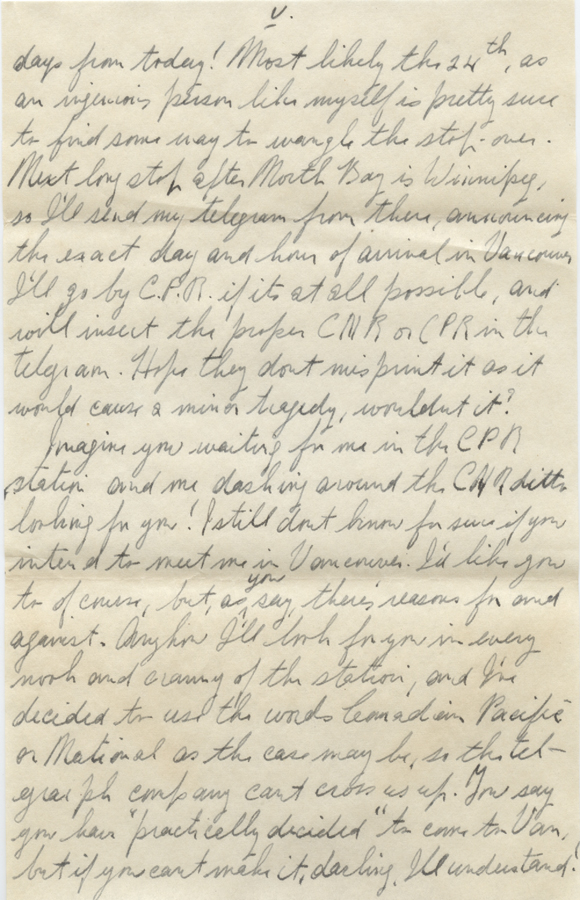 V.
days from today! Most likely the 24th, as
an ingenious person like myself is pretty sure
to find some way to wangle the stop-over.
Next long stop after North Bay is Winnipeg,
so I'll send my telegram from there, announcing
the exact day and hour of arrival in Vancouver
I'll go by C.P.R. if its at all possible, and
will insert the proper CNR or CPR in the
telegram. Hope they dont misprint it as it
would cause a minor tragedy, wouldnt it?
Imagine you waiting for me in the CPR
station and me dashing around the CNR ditto
looking for you! I still dont know for sure if you
intend to meet me in Vancouver. I'd like you
to of course, but, as you say, there's reasons for and
against. Anyhow I'll look for you in every
nook and cranny of the station, and I've
decided to use the words Canadian Pacific
or National as the case may be, so the tel-
egraph company cant cross us up. You say
you have "practically decided" to come to Van,
but if you cant make it, darling, I'll understand!